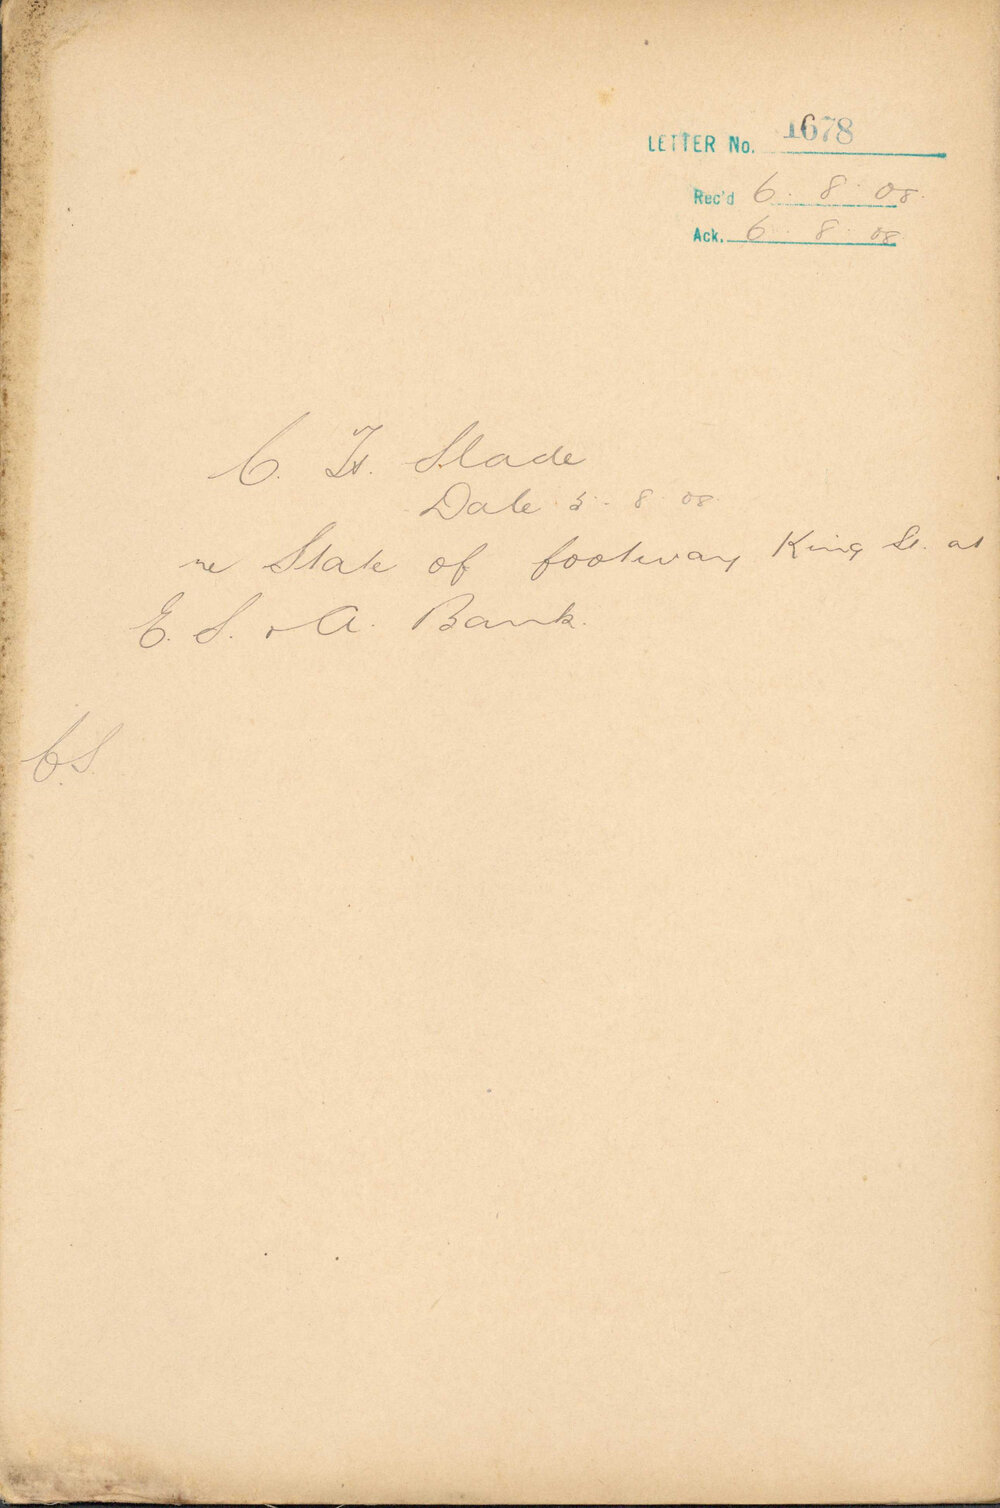 LETTER No. 1678
Rec'd 6. 8. 08.
Ack. 6. 8. 08
C. H. Slade
Date 5. 8. 08
re State of footway King St. at
E. S. & A. Bank.
C.S.